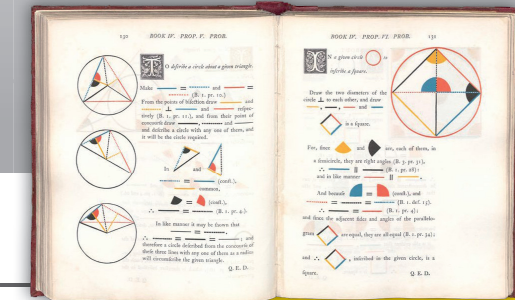 130 BOOK IV. PROP. V. PROB.
TO describe a circle about a given triangle.
Make = and =
(B. 1. pr. 10.)
From the points of bisection draw and
⊥ and respec-
tively (B. 1. pr. 11.), and from their point of
concourse draw , and
and describe a circle with any one of them, and
it will be the circle required.
In and
= (const.),
common,
= (const.),
∴ = (B. 1. pr. 4.).
In like manner it may be shown that
= .
∴ = = ; and
therefore a circle described from the concourse of
these three lines with any one of them as a radius
will circumscribe the given triangle.
Q. E. D.
BOOK IV. PROP. VI. PROB. 131
IN a given circle to
inscribe a square.
Draw the two diameters of the
circle ⊥ to each other, and draw
, , and
is a square.
For, since and are, each of them, in
a semicircle, they are right angles (B. 3. pr. 31),
∴ || (B. 1. pr. 28):
and in like manner || .
And because = (const.), and
= = (B. 1. def. 15).
∴ = (B. 1. pr. 4);
and since the adjacent sides and angles of the parallelo-
gram are equal, they are all equal (B. 1. pr. 34);
and ∴ , inscribed in the given circle, is a
square. Q. E. D.